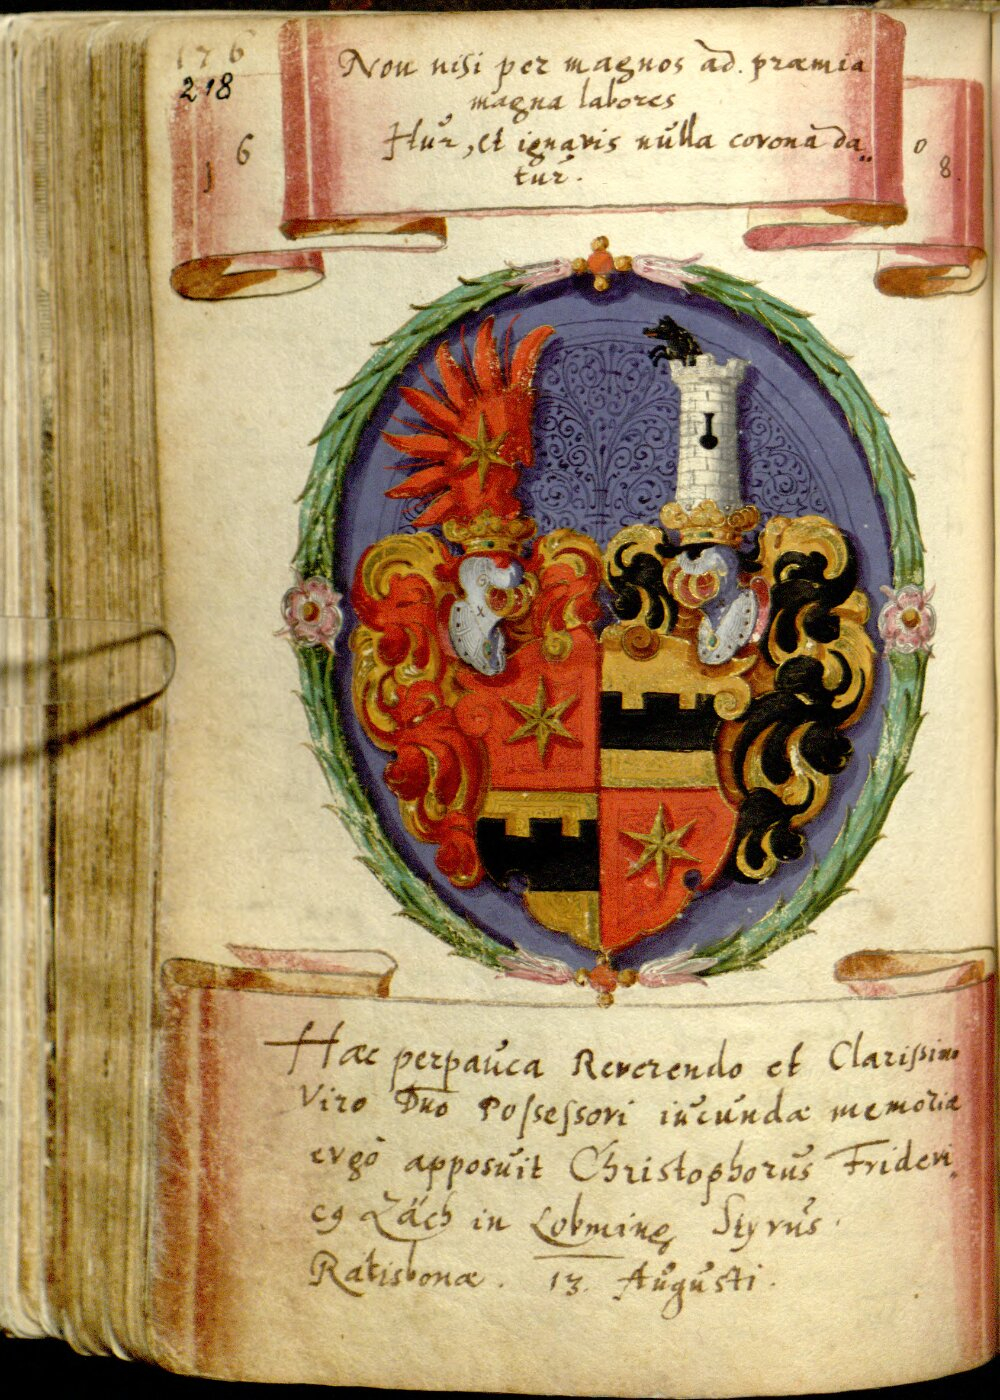 176
218
Non nisi per magnos ad. præmia
magna labores
Hur, et ignavis nulla corona da„
tur.
1 6 0 8.
Hæc perpauca Reverendo et Clariſsimo
Viro Dno Poſseſsori iucundæ memoriæ
ergò apposuit Christophorus Frideri„
cꝰ Zäch in Lobming Styrus.
Ratisbonæ. 13. Augusti.